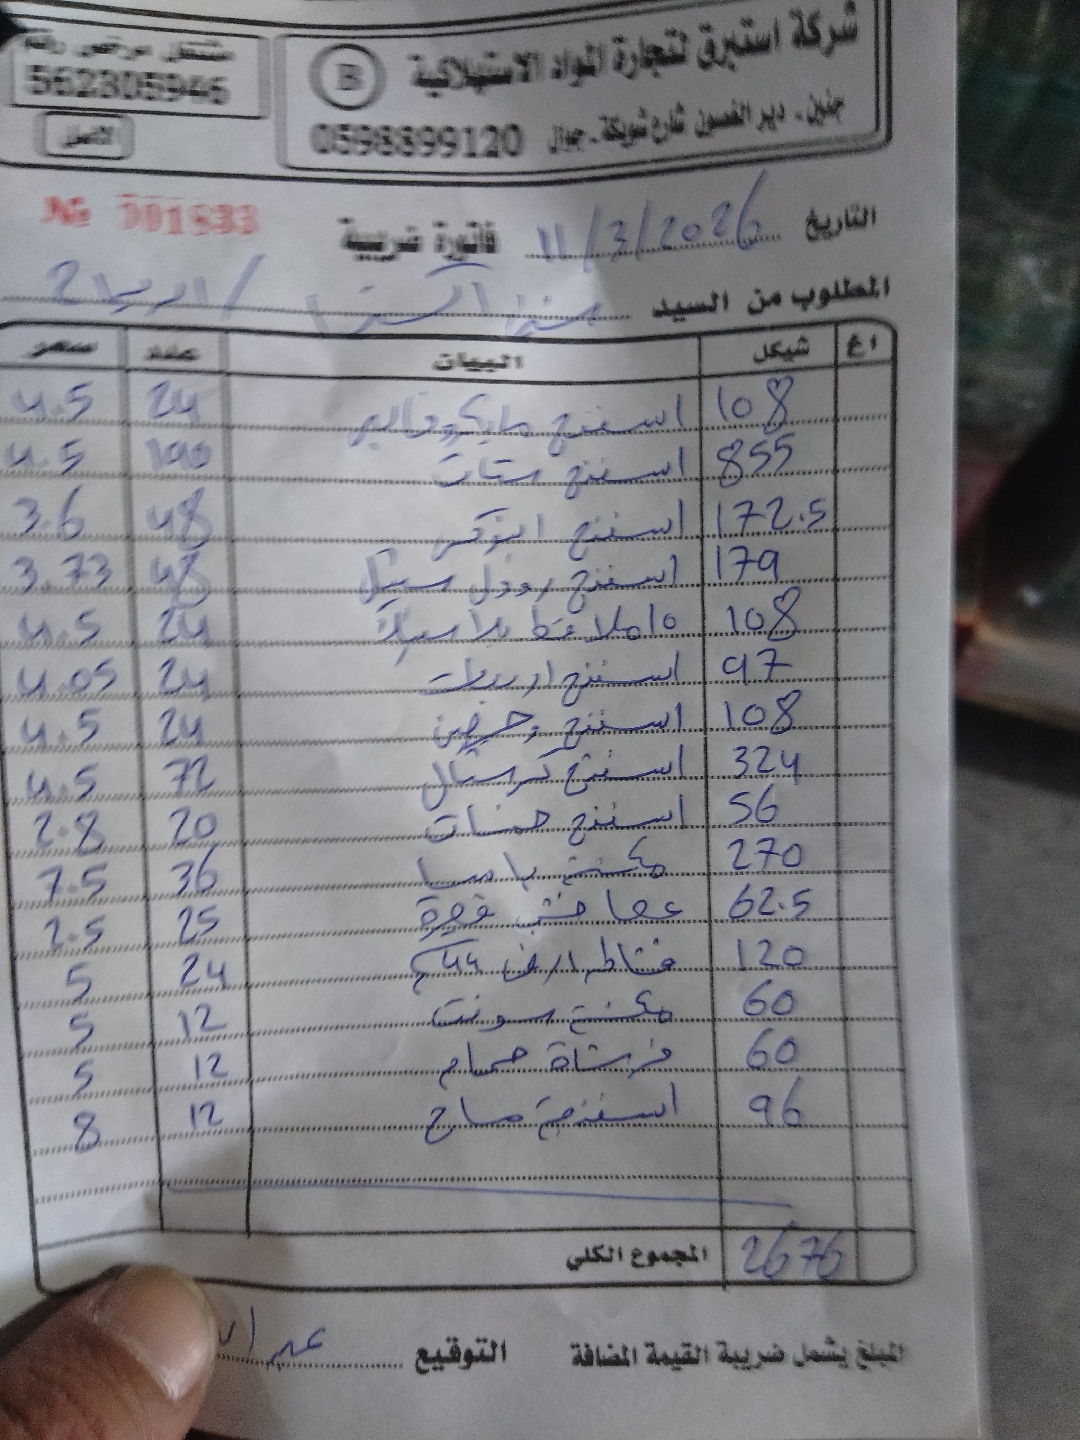 شركة استبرق لتجارة المواد الاستهلاكية
جنين - دير الغصون شارع شويكة - جوال 0598899120
B
مشتغل مرخص رقم
562305946
الأصل
التاريخ 11/3/2026 فاتورة ضريبية № 001933
المطلوب من السيد
اغ شيكل البيان عدد سعر
108 اسفنج 24 4.5
855 اسفنج ستات 190 4.5
172.5 اسفنج 48 3.6
179 اسفنج رودل ستيل 48 3.73
108 24 4.5
97 اسفنج 24 4.05
108 اسفنج 24 4.5
324 اسفنج كرستال 72 4.5
56 اسفنج حسنات 20 2.8
270 مكنسة 36 7.5
62.5 عصا خشب قهوة 25 2.5
120 24 5
60 مكنسة سونت 12 5
60 فرشاة حمام 12 5
96 اسفنجة مساج 12 8
المجموع الكلي 2676
المبلغ يشمل ضريبة القيمة المضافة التوقيع